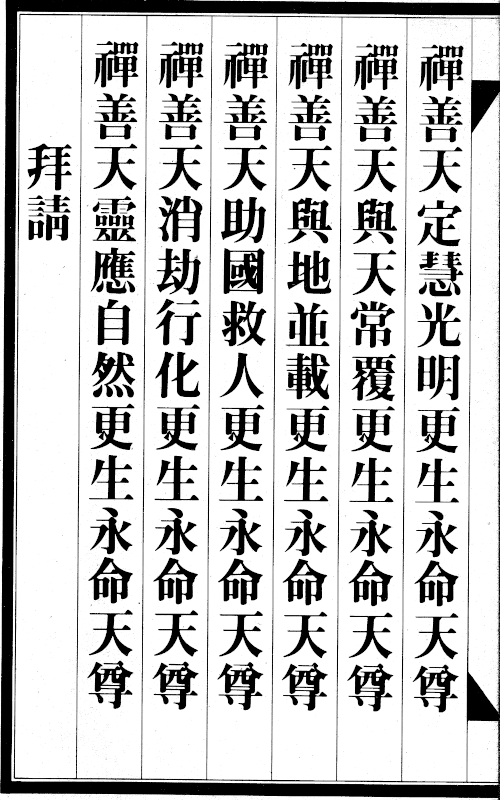 禪善天定慧光明更生永命天尊
禪善天與天常覆更生永命天尊
禪善天與地並載更生永命天尊
禪善天助國救人更生永命天尊
禪善天消劫行化更生永命天尊
禪善天靈應自然更生永命天尊
拜請